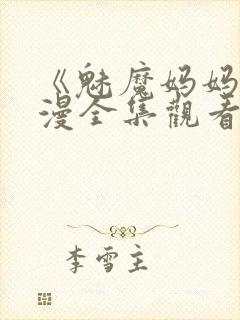 《魅魔妈妈
漫全集觀看
李雪主